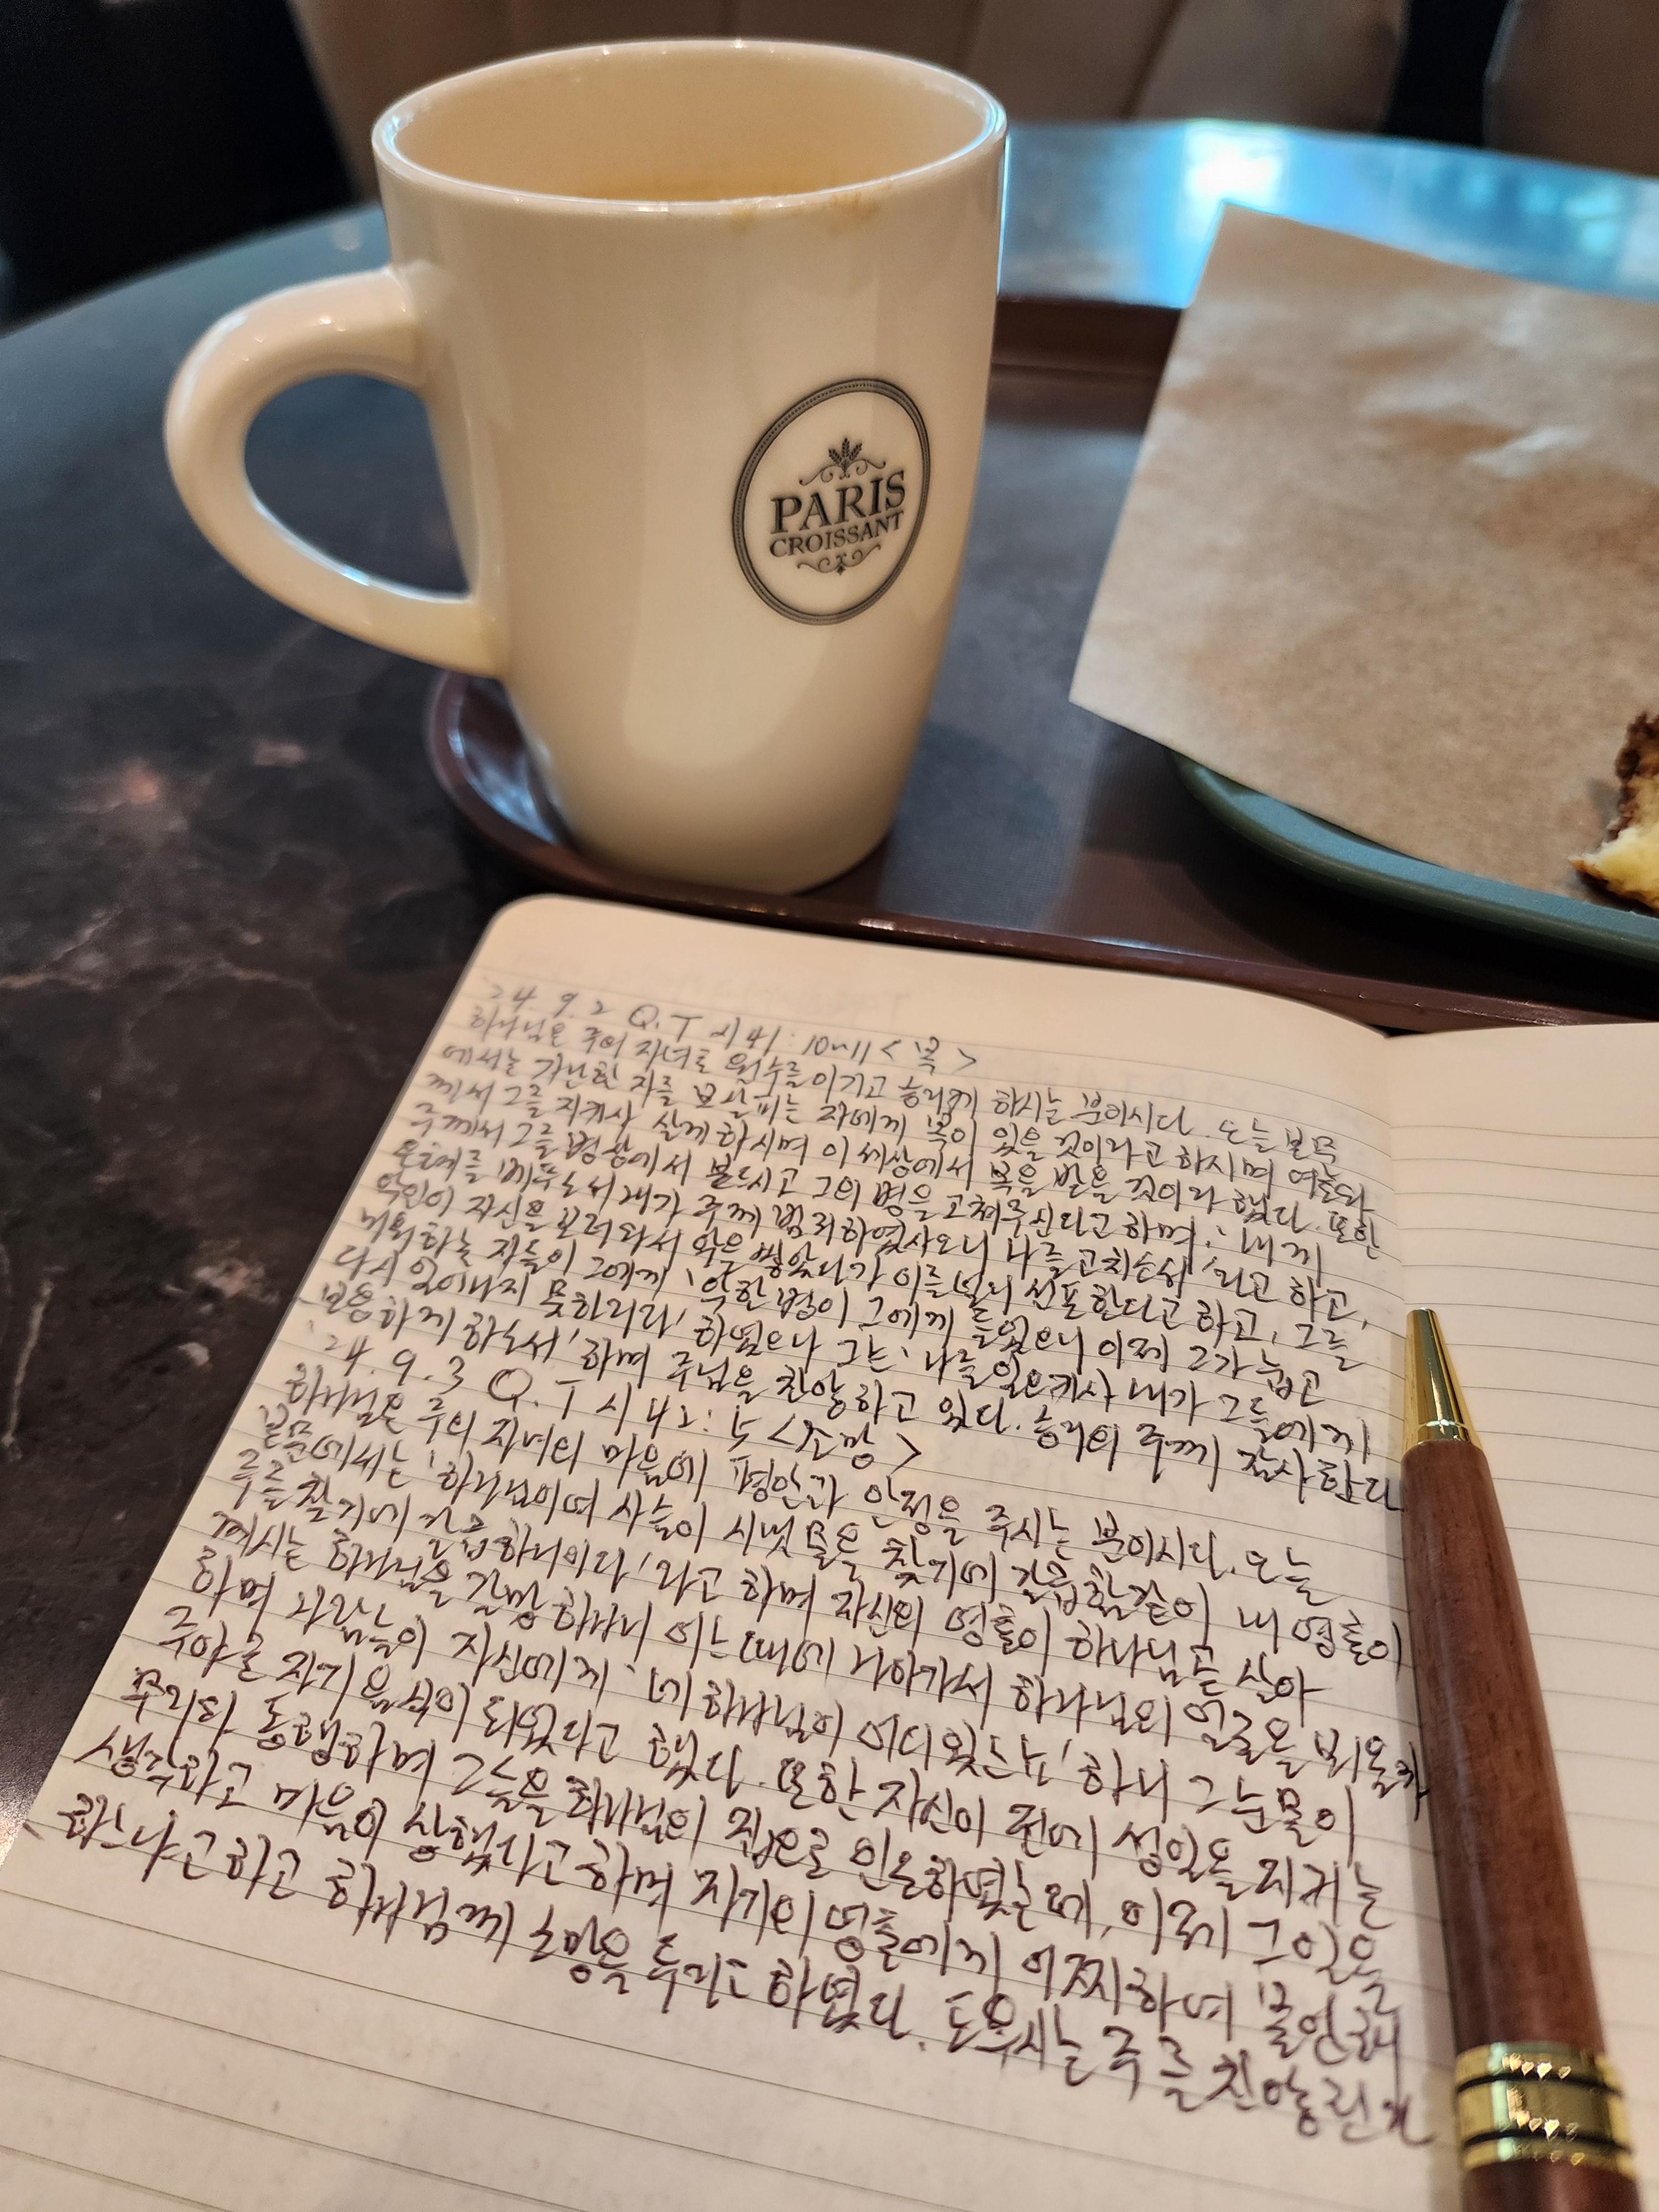 PARIS
CROISSANT
24. 9. 2 Q.T 시41:10~11 <복>
하나님은 주의 자녀로 원수를 이기고 승리케 하시는 분이시다. 오늘 본문
에서는 가난한 자를 보살피는 자에게 복이 있을 것이라고 하시며 여호와
께서 그를 지키사 살게 하시며 이 세상에서 복을 받을 것이라 했다. 또한
주께서 그를 병상에서 붙드시고 그의 병을 고쳐주신다고 하며, '내게
은혜를 베푸소서 내가 주께 범죄하였사오니 나를 고치소서'라고 하고,
악인이 자신을 보러 와서 악은 쌓았다가 이를 널리 선포한다고 하고, 그를
미워하는 자들이 그에게 '악한 병이 그에게 들었으니 이제 그가 눕고
다시 일어나지 못하리라' 하였으나 그는 '나를 일으키사 내가 그들에게
보응하게 하소서' 하며 주님을 찬양하고 있다. 승리의 주께 감사한다
'24. 9. 3 Q.T 시 42:5 <소망>
하나님은 주의 자녀의 마음에 평안과 안정을 주시는 분이시다. 오늘
본문에서는 '하나님이여 사슴이 시냇물을 찾기에 갈급함같이 내 영혼이
주를 찾기에 갈급하니이다'라고 하며 자신의 영혼이 하나님 곧 살아
계시는 하나님을 갈망하나니 어느때에 나아가서 하나님의 얼굴을 뵈올까
하며 사람들이 자신에게 '네 하나님이 어디 있느뇨' 하니 그 눈물이
주야로 자기 음식이 되었다고 했다. 또한 자신이 전에 성일을 지키는
무리와 동행하며 그들을 하나님의 집으로 인도하였는데, 이제 그 일을
생각하고 마음이 상했다고 하며 자기의 영혼에게 어찌하여 불안해
하느냐고 하고 하나님께 소망을 두라고 하였다. 도우시는 주를 찬양한다